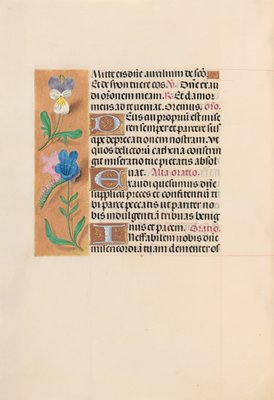 Mitte eis dñe auxilium de sc̄o.
Et de syon tuere eos. V. Dñe exau
di orõnem meam. R. Et clamor
meus ad te veniat. Oremus. Orõ.
Deus cui proprium est misere
ri semper et parcere sus
cipe deprecationem nostram. vt
quos delictorũ cathena constrin
git miseratio tue pietatis absol
uat. Alia oratio.
Exaudi quesumus dñe
supplicũ preces et confitentiũ ti
bi parce peccatis vt pariter no
bis indulgentiã tribuas benig
nus et pacem. Oratio.
Ineffabilem nobis dñe
misericordiã tuam clementer os